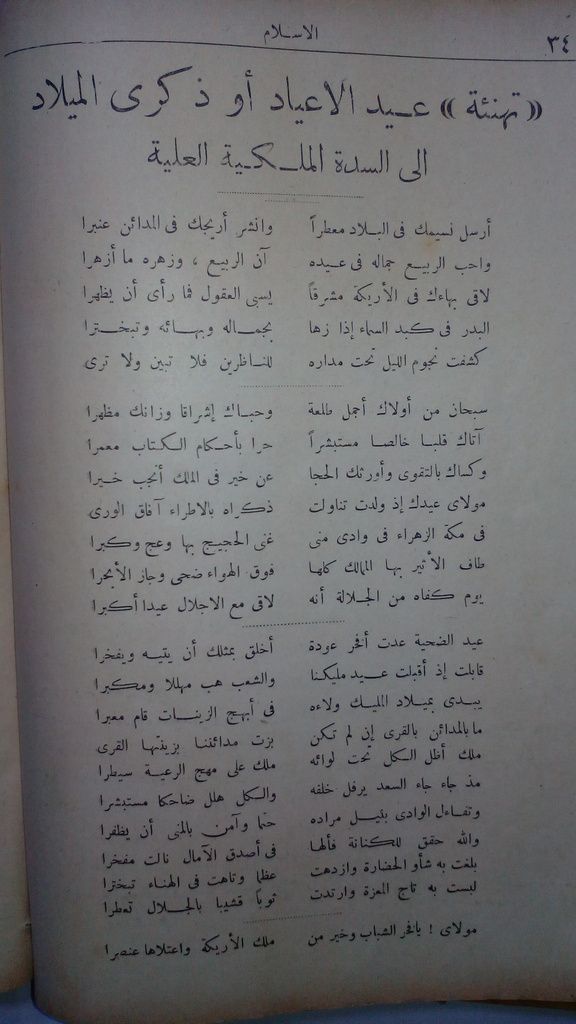 ٣٤
الاسلام
«تهنئة» عيد الاعياد أو ذكرى الميلاد
الى السدة الملكية العلية
أرسل نسيمك فى البلاد معطراً وانشر أريجك فى المدائن عنبرا
واحب الربيع جماله فى عيده آن الربيع ، وزهره ما أزهرا
لاقى بهاءك فى الأريكة مشرقاً يسبى العقول فما رأى أن يظهرا
البدر فى كبد السماء إذا زها بجماله وبهائه وتبخترا
كشفت نجوم الليل تحت مداره للناظرين فلا تبين ولا ترى
سبحان من أولاك أجمل طلعة وحباك إشراقا وزانك مظهرا
آتاك قلبا خالصا مستبشراً حرا بأحكام الكتاب معمرا
وكساك بالتقوى وأورثك الحجا عن خير فى الملك أنجب خيرا
مولاى عيدك إذ ولدت تناولت ذكراه بالاطراء آفاق الورى
فى مكة الزهراء فى وادى منى غنى الحجيج بها وعج وكبرا
طاف الأثير بها الممالك كلها فوق الهواء ضحى وجاز الأبحرا
يوم كفاه من الجلالة أنه لاقى مع الاجلال عيدا أكبرا
عيد الضحية عدت أفخر عودة أخلق بمثلك أن يتيه ويفخرا
قابلت إذ أقبلت عيد مليكنا والشعب هب مهللا ومكبرا
يبدى بميلاد المليك ولاءه فى أبهج الزينات قام معبرا
ما بالمدائن بالقرى إن لم تكن بزت مدائننا بزينتها القرى
ملك أظل الكل تحت لوائه ملك على مهج الرعية سيطرا
مذ جاء جاء السعد يرفل خلفه والكل هلل ضاحكا مستبشرا
وتفاءل الوادى بنيل مراده حتما وآمن بالمنى أن يظفرا
والله حقق للكنانة فألها فى أصدق الآمال نالت مفخرا
بلغت به شأو الحضارة وازدهت عظما وتاهت فى الهناء تبخترا
لبست به تاج العزة وارتدت ثوباً قشيبا بالجلال تعطرا
مولاى ! يافخر الشباب وخير من ملك الأريكة واعتلاها عنصرا